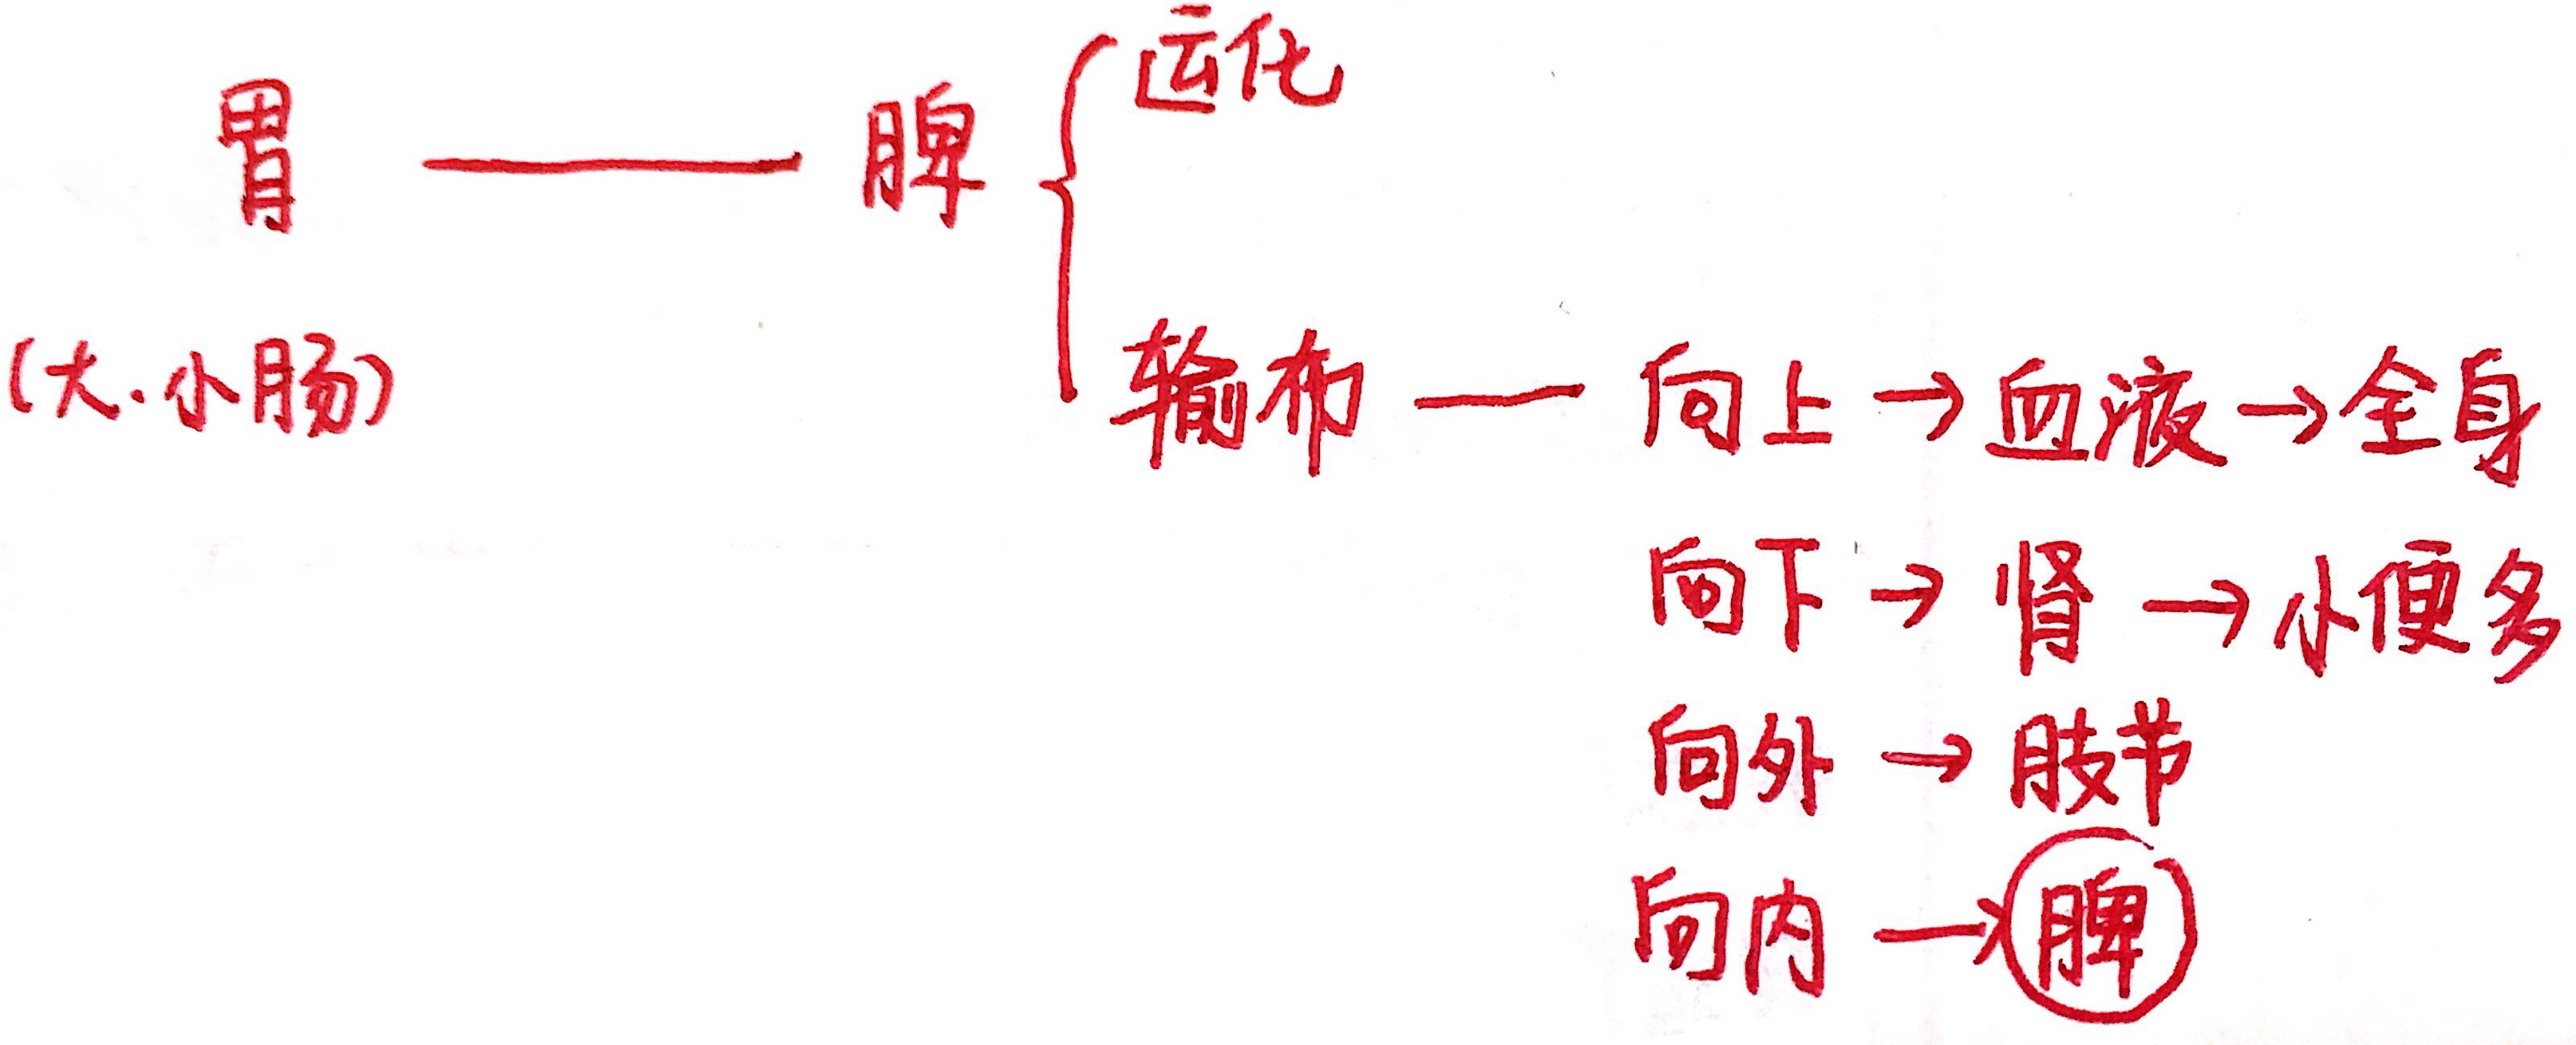 运化
胃 —— 脾
(大.小肠)
输布 — 向上 → 血液 → 全身
向下 → 肾 → 小便多
向外 → 肢节
向内 → 脾